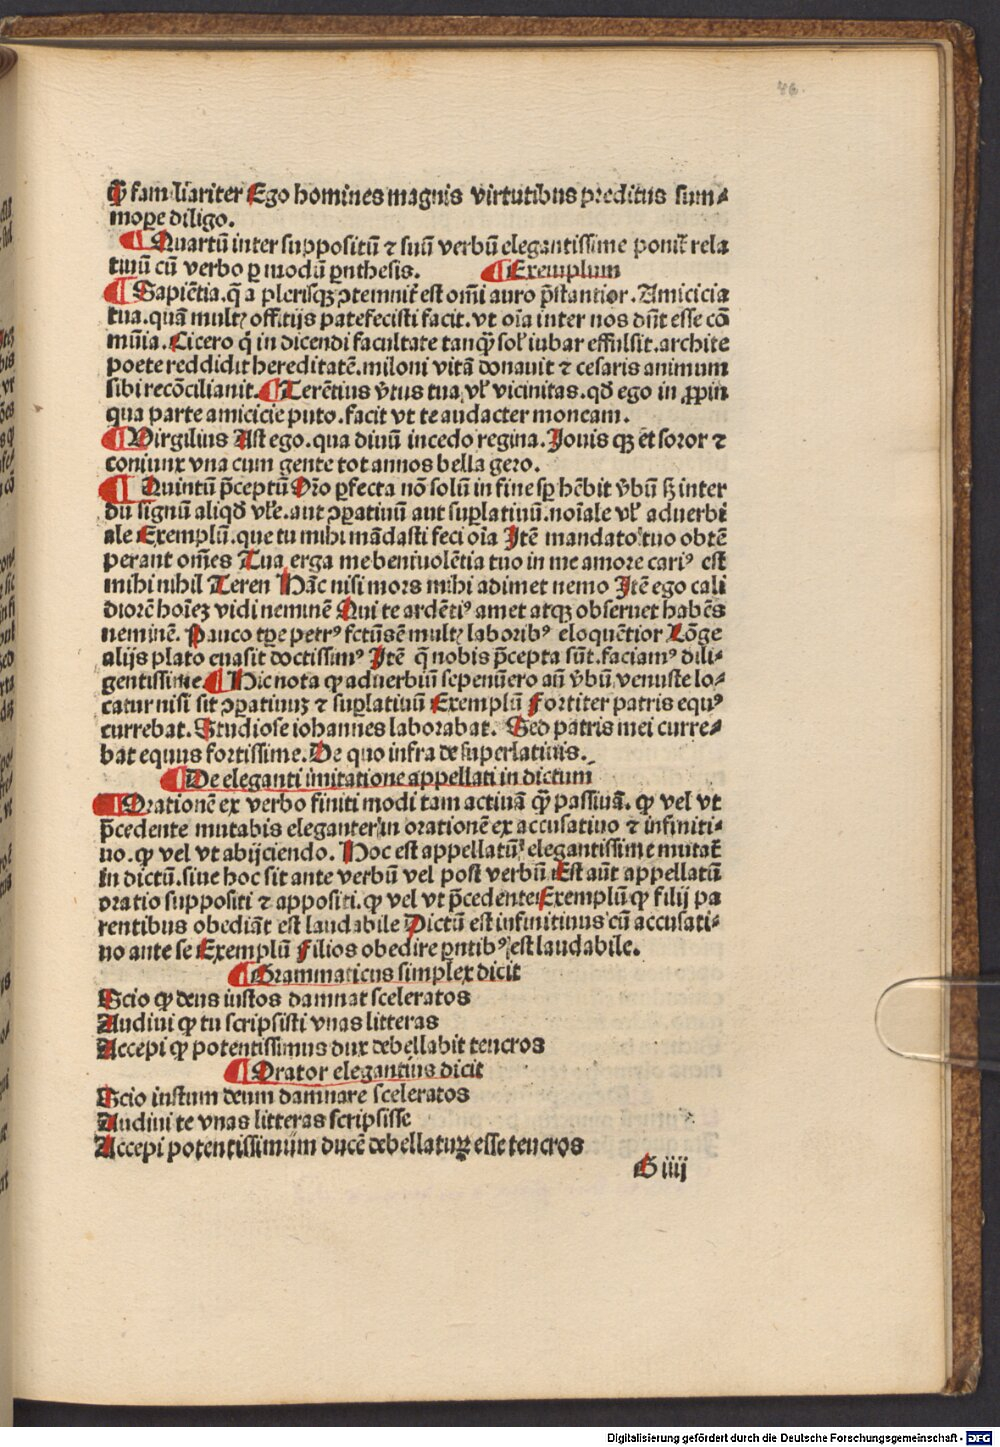 46.
qꝫ familiariter Ego homines magnis virtutibus preditus sum⸗
mope diligo.
¶ Quartū inter suppositū ⁊ suū verbū elegantissime ponit᷑ rela
tiuū cū verbo ꝑ modū pnthesis. ¶ Exemplum
¶ Sapiētia.q̄ a pleris�qꝫ ꝯtemnit᷑ est om̄i auro p̄stantior. Amicicia
tua.quā multꝭ offitijs patefecisti facit.vt oīa inter nos dn̄t esse cō
mūia. Cicero q̄ in dicendi facultate tanq̄ꝫ sol᷑ iubar effulsit.archite
poete reddidit hereditatē.miloni vitā donauit ⁊ cesaris animum
sibi recōciliauit. ¶ Terētius v̄tus tua vl᷑ vicinitas.qd̄ ego in ꝓpin
qua parte amicicie puto.facit vt te audacter moneam.
¶ Virgilius Ast ego.qua diuū incedo regina. Jouis qꝫ et soror ⁊
coniunx vna cum gente tot annos bella gero.
¶ Quintū p̄ceptū Or̄o ꝑfecta nō solū in fine sꝑ hēbit v̄bū sꝫ inter
dū signū aliqd̄ vl᷑e.aut ꝯꝑatiuū aut suꝑlatiuū.noīale vl᷑ aduerbi
ale Exemplū.que tu mihi mādasti feci oīa Jtē mandato tuo obtē
perant om̄es Tua erga me beniuolētia tuo in me amore cariꝰ est
mihi nihil Teren Hāc nisi mors mihi adimet nemo Jtē ego cali
diorē hoīeꝫ vidi neminē Qui te ardētiꝰ amet atqꝫ obseruet habēs
neminē. Pauco tꝑe petrꝰ fctūsē multꝭ laboribꝰ eloquētior Lōge
alijs plato euasit doctissimꝰ Jtē q̄ nobis p̄cepta sūt.faciamꝰ dili⸗
gentissime ¶ Hic nota ꝙ aduerbiū sepenūero aū v̄bū venuste lo⸗
catur nisi sit ꝯꝑatiuuꝫ ⁊ suꝑlatiuū Exemplū Fortiter patris equꝰ
currebat. Studiose iohannes laborabat. Sed patris mei curre⸗
bat equus fortissime. De quo infra de superlatiuis.
¶ De eleganti imitatione appellati in dictum
¶ Orationē ex verbo finiti modi tam actiuā q̄ꝫ passiuā.ꝙ vel vt
p̄cedente mutabis eleganter in orationē ex accusatiuo ⁊ infiniti⸗
uo.ꝙ vel vt abijciendo. Hoc est appellatū elegantissime mutat᷑
in dictū.siue hoc sit ante verbū vel post verbū Est aūt appellatū
oratio suppositi ⁊ appositi.ꝙ vel vt p̄cedente Exemplū ꝙ filij pa
rentibus obediāt est laudabile Dictū est infinitinus cū accusati⸗
uo ante se Exemplū Filios obedire pntibꝰ est laudabile.
¶ Grammaticus simplex dicit
Scio ꝙ deus iustos damnat sceleratos
Audiui ꝙ tu scripsisti vnas litteras
Accepi ꝙ potentissimus dux debellabit teucros
¶ Orator elegantius dicit
Scio iustum deum damnare sceleratos
Audiui te vnas litteras scripsisse
Accepi potentissimum ducē debellatuꝝ esse teucros
G iiij
Digitalisierung gefördert durch die Deutsche Forschungsgemeinschaft - DFG